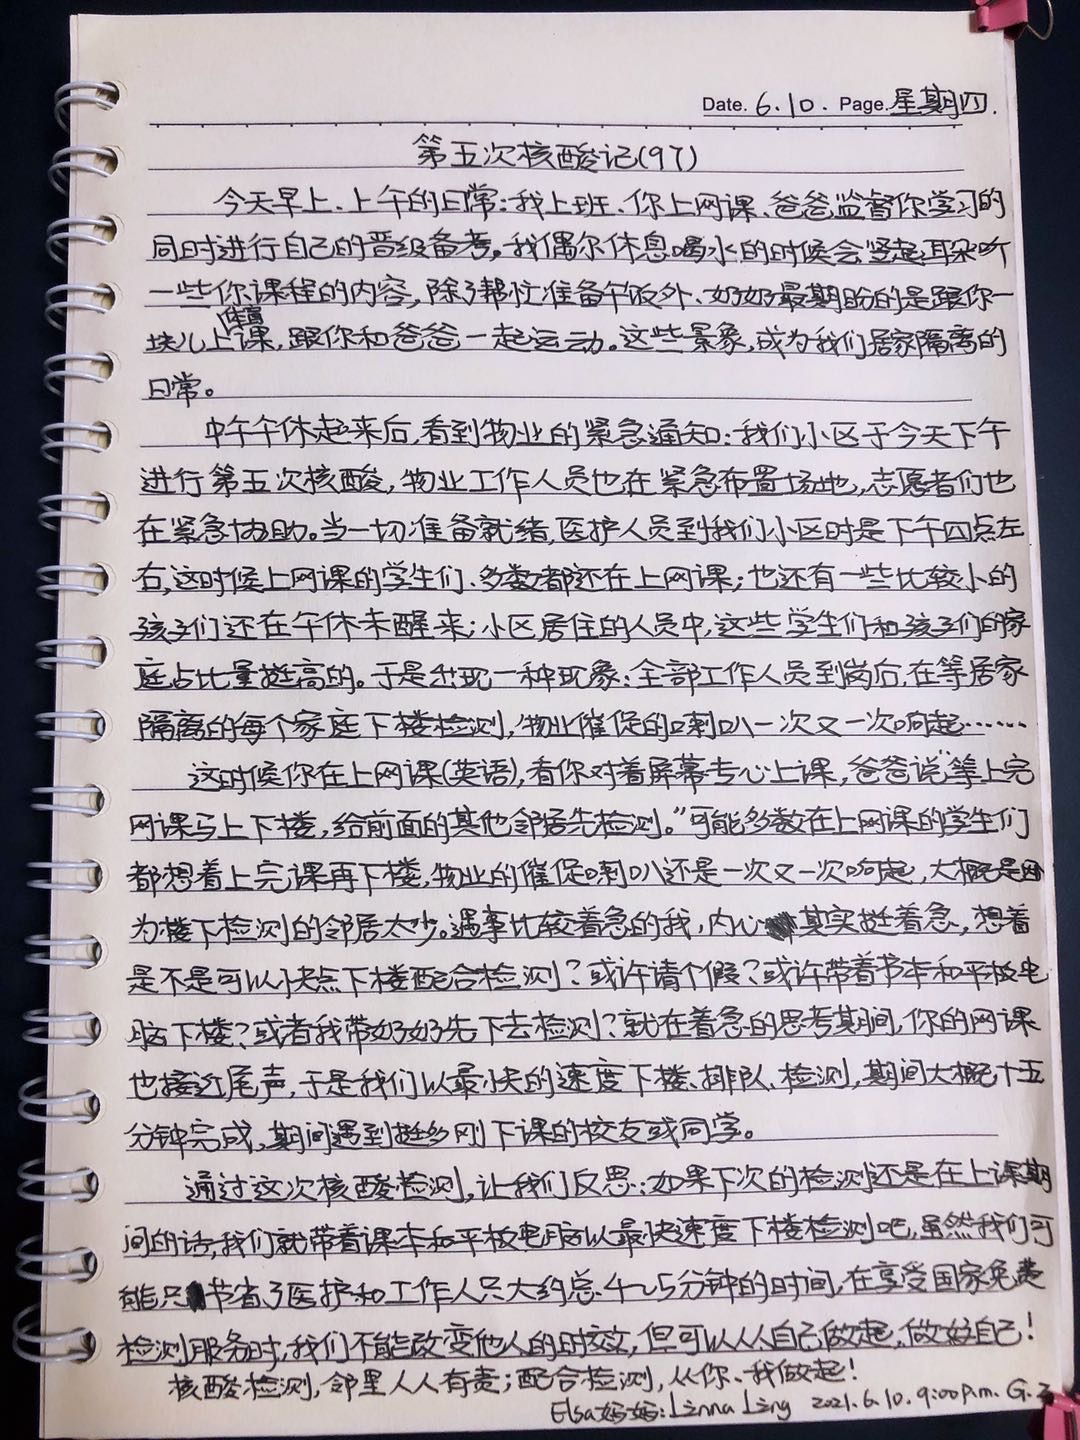 Date. 6.10. Page. 星期四.
第五次核酸记(97)
今天早上、上午的日常:我上班、你上网课、爸爸监督你学习的
同时进行自己的晋级备考。我偶尔休息喝水的时候会竖起耳朵听
一些你课程的内容,除了帮忙准备午饭外、奶奶最期盼的是跟你一
块儿上体育课,跟你和爸爸一起运动。这些景象,成为我们居家隔离的
日常。
中午午休起来后,看到物业的紧急通知:我们小区于今天下午
进行第五次核酸,物业工作人员也在紧急布置场地,志愿者们也
在紧急协助。当一切准备就绪,医护人员到我们小区时是下午四点左
右,这时候上网课的学生们、多数都还在上网课;也还有一些比较小的
孩子们还在午休未醒来;小区居住的人员中,这些学生们和孩子们的家
庭占比量挺高的。于是出现一种现象:全部工作人员到岗后,在等居家
隔离的每个家庭下楼检测,物业催促的喇叭一次又一次响起……
这时候你在上网课(英语),看你对着屏幕专心上课,爸爸说“等上完
网课马上下楼,给前面的其他邻居先检测。”可能多数在上网课的学生们
都想着上完课再下楼,物业的催促喇叭还是一次又一次响起,大概是因
为楼下检测的邻居太少。遇事比较着急的我,内心其实挺着急,想着
是不是可以快点下楼配合检测?或许请个假?或许带着书本和平板电
脑下楼?或者我带奶奶先下去检测?就在着急的思考期间,你的网课
也接近尾声,于是我们以最快的速度下楼、排队、检测,期间大概十五
分钟完成,期间遇到挺多刚下课的校友或同学。
通过这次核酸检测,让我们反思:如果下次的检测还是在上课期
间的话,我们就带着课本和平板电脑以最快速度下楼检测吧,虽然我们可
能只节省了医护和工作人员大约总4~5分钟的时间,在享受国家免费
检测服务时,我们不能改变他人的时效,但可以从自己做起,做好自己!
核酸检测,邻里人人有责;配合检测,从你、我做起!
Elsa妈妈:Linna Ling 2021.6.10. 9:00p.m. G.Z